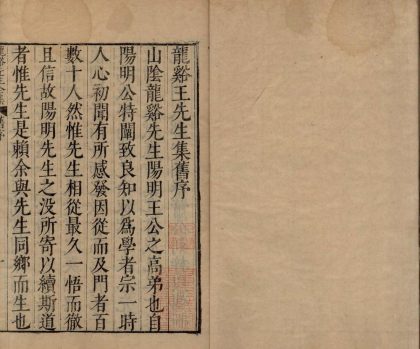 龍谿王先生集舊序
山陰龍谿先生陽明王公之高弟也自
陽明公特闡致良知以為學者宗一時
人心初聞有所感發因從而及門者百
數十人然惟先生相從最久一悟而徹
且信故陽明先生之没所寄以續斯道
者惟先生是賴余與先生同鄉而生也